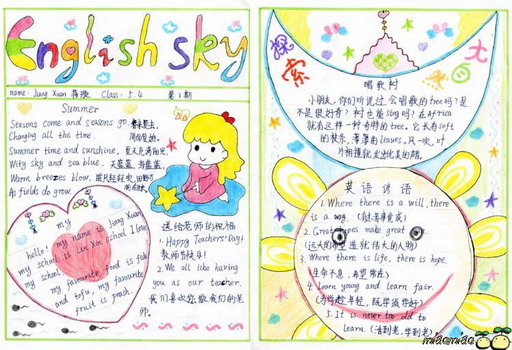 English sky
name: Jiang Xuan 蒋璇 Class: 5.4 第1期
Summer
Seasons come and seasons go,
Changing all the time.
Summer time and sunshine, 夏天充满阳光
Wity sky and sea blue. 天蓝蓝 海蓝蓝
Warm breezes blow,
As fields do grow.
hello! my name is Jiang Xuan,
my school is Lin Xin school I love
my school,
my favourite food is fish
and tofu, my favourite
fruit is peach.
送给老师的祝福
1. Happy Teachers' Day!
教师节快乐!
2. We all like having
you as our teacher.
我们喜欢您做我们的老
师。
探索大
唱歌树
小朋友,你们听说过会唱歌的tree吗?是
不是很好奇?树也能sing吗?在Africa
就有这样一种奇特的tree。它长有soft
的枝条,薄薄的leaves,风一吹,叶
片相撞就
英语谚语
1. Where there is a will, there
is a way. (有志者事竟成)
2. Great hopes make great
(远大的希望造就伟大的人物)
3. Where there is life, there is hope.
(生命不息,希望常在)
4. Learn young and learn fair.
5. It is never too old to
learn. (活到老,学到老)
miaomiao